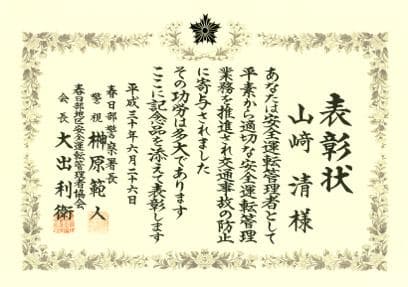 表彰状
山﨑 清 様
あなたは安全運転管理者として
平素から適切な安全運転管理
業務を推進され交通事故の防止
に寄与されました
その功労は多大であります
ここに記念品を添えて表彰します
平成三十年六月二十六日
春日部警察署長
警視 榊原範人
春日部地区安全運転管理者協会
会長 大出利衛